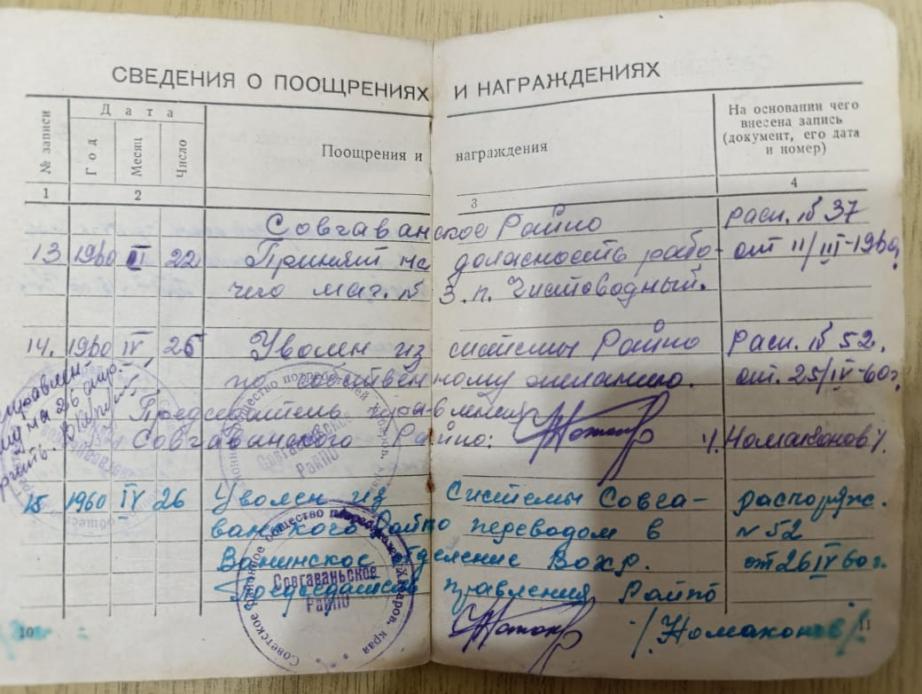 СВЕДЕНИЯ О ПООЩРЕНИЯХ И НАГРАЖДЕНИЯХ
№ записи
Дата
Год
Месяц
Число
Поощрения и награждения
На основании чего
внесена запись
(документ, его дата
и номер)
1 2 3 4
Совгаванское Райпо расп. № 37
13 1960 III 22 Принят на должность рабо- от 11/III-1960г.
чего маг. № 3. п. Чистоводный.
14. 1960 IV 26 Уволен из системы Райпо Расп. № 52.
по собственному желанию. от. 25/IV-60г.
Председатель правления
Совгаванского Райпо: /Номаконов/.
на 26 апр.
Совгаваньское
РАЙПО
15 1960 IV 26 Уволен из системы Совга- распоряж.
ванского Райпо переводом в № 52
Ванинское отделение Вохр. от 26 IV 60г.
Председатель правления Райпо
/Номаконов/
Советское районное общество потребителей Хабаров. края
Совгаваньское
РАЙПО
10 11